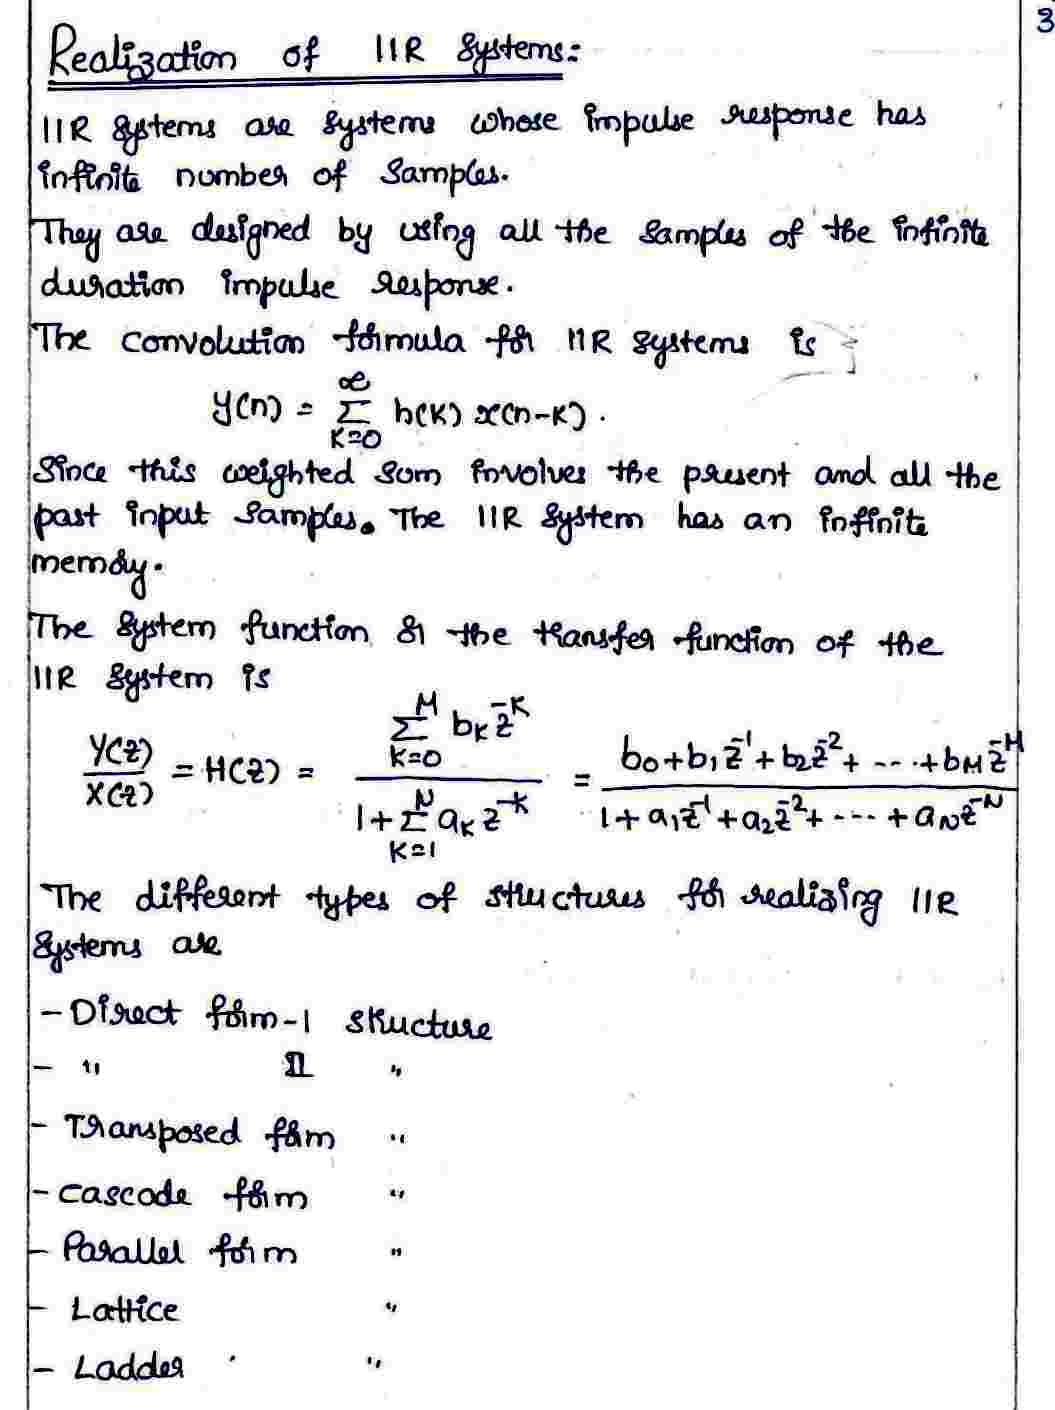 3
Realization of IIR Systems:
IIR systems are systems whose impulse response has
infinite number of samples.
They are designed by using all the samples of the infinite
duration impulse response.
The convolution formula for IIR systems is
y(n) = ∑_{K=0}^{∞} h(K) x(n-K).
Since this weighted sum involves the present and all the
past input samples. The IIR system has an infinite
memory.
The system function or the transfer function of the
IIR system is
Y(z)/X(z) = H(z) = (∑_{K=0}^{M} b_K z^{-K}) / (1 + ∑_{K=1}^{N} a_K z^{-K}) = (b0 + b1 z^{-1} + b2 z^{-2} + --- + bM z^{-M}) / (1 + a1 z^{-1} + a2 z^{-2} + ---- + aN z^{-N})
The different types of structures for realizing IIR
systems are
- Direct form-1 structure
- " II "
- Transposed form "
- cascode form "
- Parallel form "
- Lattice "
- Ladder "